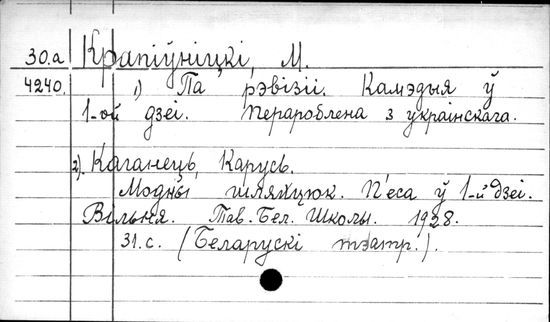 30.а Крапіўніцкі, М.
4240. 1) Па рэвізіі. Камэдыя ў
1-ой дзеі. Перароблена з украінскага.
2). Каганець, Карусь.
Модны шляхцюк. П'еса ў 1-й дзеі.
Вільня. Тав. Бел. Школы. 1928.
31.с. (Беларускі тэатр.).